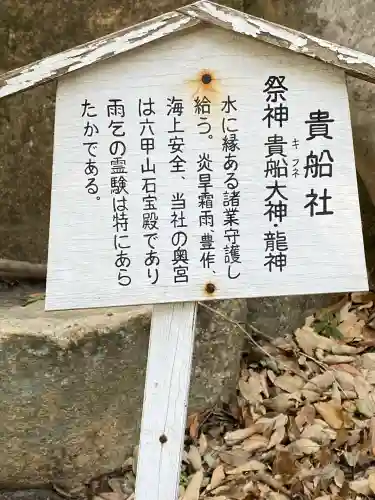 貴船社
祭神 貴船大神・龍神
キフネ
水に縁ある諸業守護し
給う。炎旱霜雨、豊作、
海上安全、当社の奥宮
は六甲山石宝殿であり
雨乞の霊験は特にあら
たかである。